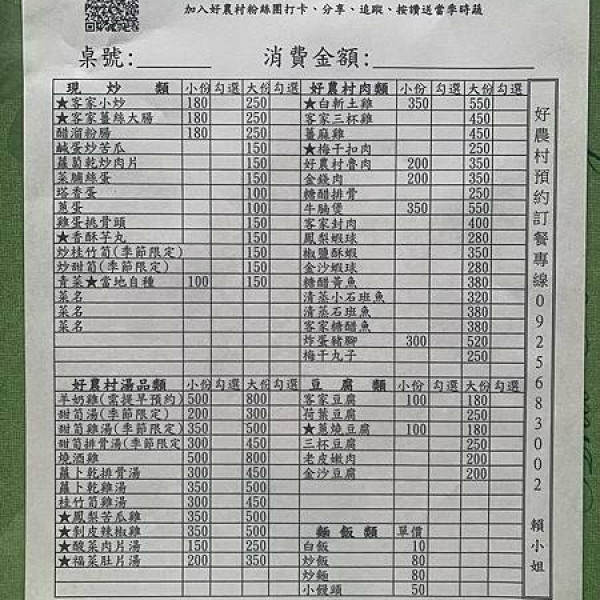 加入好農村粉絲團打卡、分享、追蹤、按讚送當季時蔬
桌號: 消費金額:
現 炒 類 小份 勾選 大份 勾選
★客家小炒 180 250
★客家薑絲大腸 180 250
醋溜粉腸 180 250
鹹蛋炒苦瓜 150
蘿蔔乾炒肉片 150
菜脯絲蛋 150
塔香蛋 100
蔥蛋 100
雞蛋挑骨頭 150
★香酥芋丸 150
炒桂竹筍(季節限定) 150
炒甜筍(季節限定) 150
青菜★當地自種 100 150
菜名
菜名
菜名
好農村肉類 小份 勾選 大份 勾選
★白斬土雞 350 550
客家三杯雞 450
薑麻雞 450
★梅干扣肉 250
好農村魯肉 200 350
金錢肉 200 350
糖醋排骨 250
牛腩煲 350 550
客家封肉 400
鳳梨蝦球 280
椒鹽酥蝦 350
金沙蝦球 280
糖醋黃魚 380
清蒸小石班魚 320
清蒸石班魚 380
客家糖醋魚 380
炸蛋豬腳 300 520
梅干丸子 250
好農村湯品類 小份 勾選 大份 勾選
羊奶雞(需提早預約) 500 800
甜筍湯(季節限定) 200 300
甜筍雞湯(季節限定) 350 500
甜筍排骨湯(季節限定 300 450
燒酒雞 500 800
蘿卜乾排骨湯 300 450
蘿卜乾雞湯 350 500
桂竹筍雞湯 300 450
★鳳梨苦瓜雞 350 500
★剝皮辣椒雞 350 500
★酸菜肉片湯 150 250
★福菜肚片湯 200 350
豆 腐 類 小份 勾選 大份 勾選
客家豆腐 100 180
荷葉豆腐 250
★蔥燒豆腐 100 180
三杯豆腐 250
老皮嫩肉 200
金沙豆腐 200
麵 飯 類 單價
白飯 10
炒飯 80
炒麵 80
小饅頭 50
好農村預約訂餐專線0925683002 賴小姐